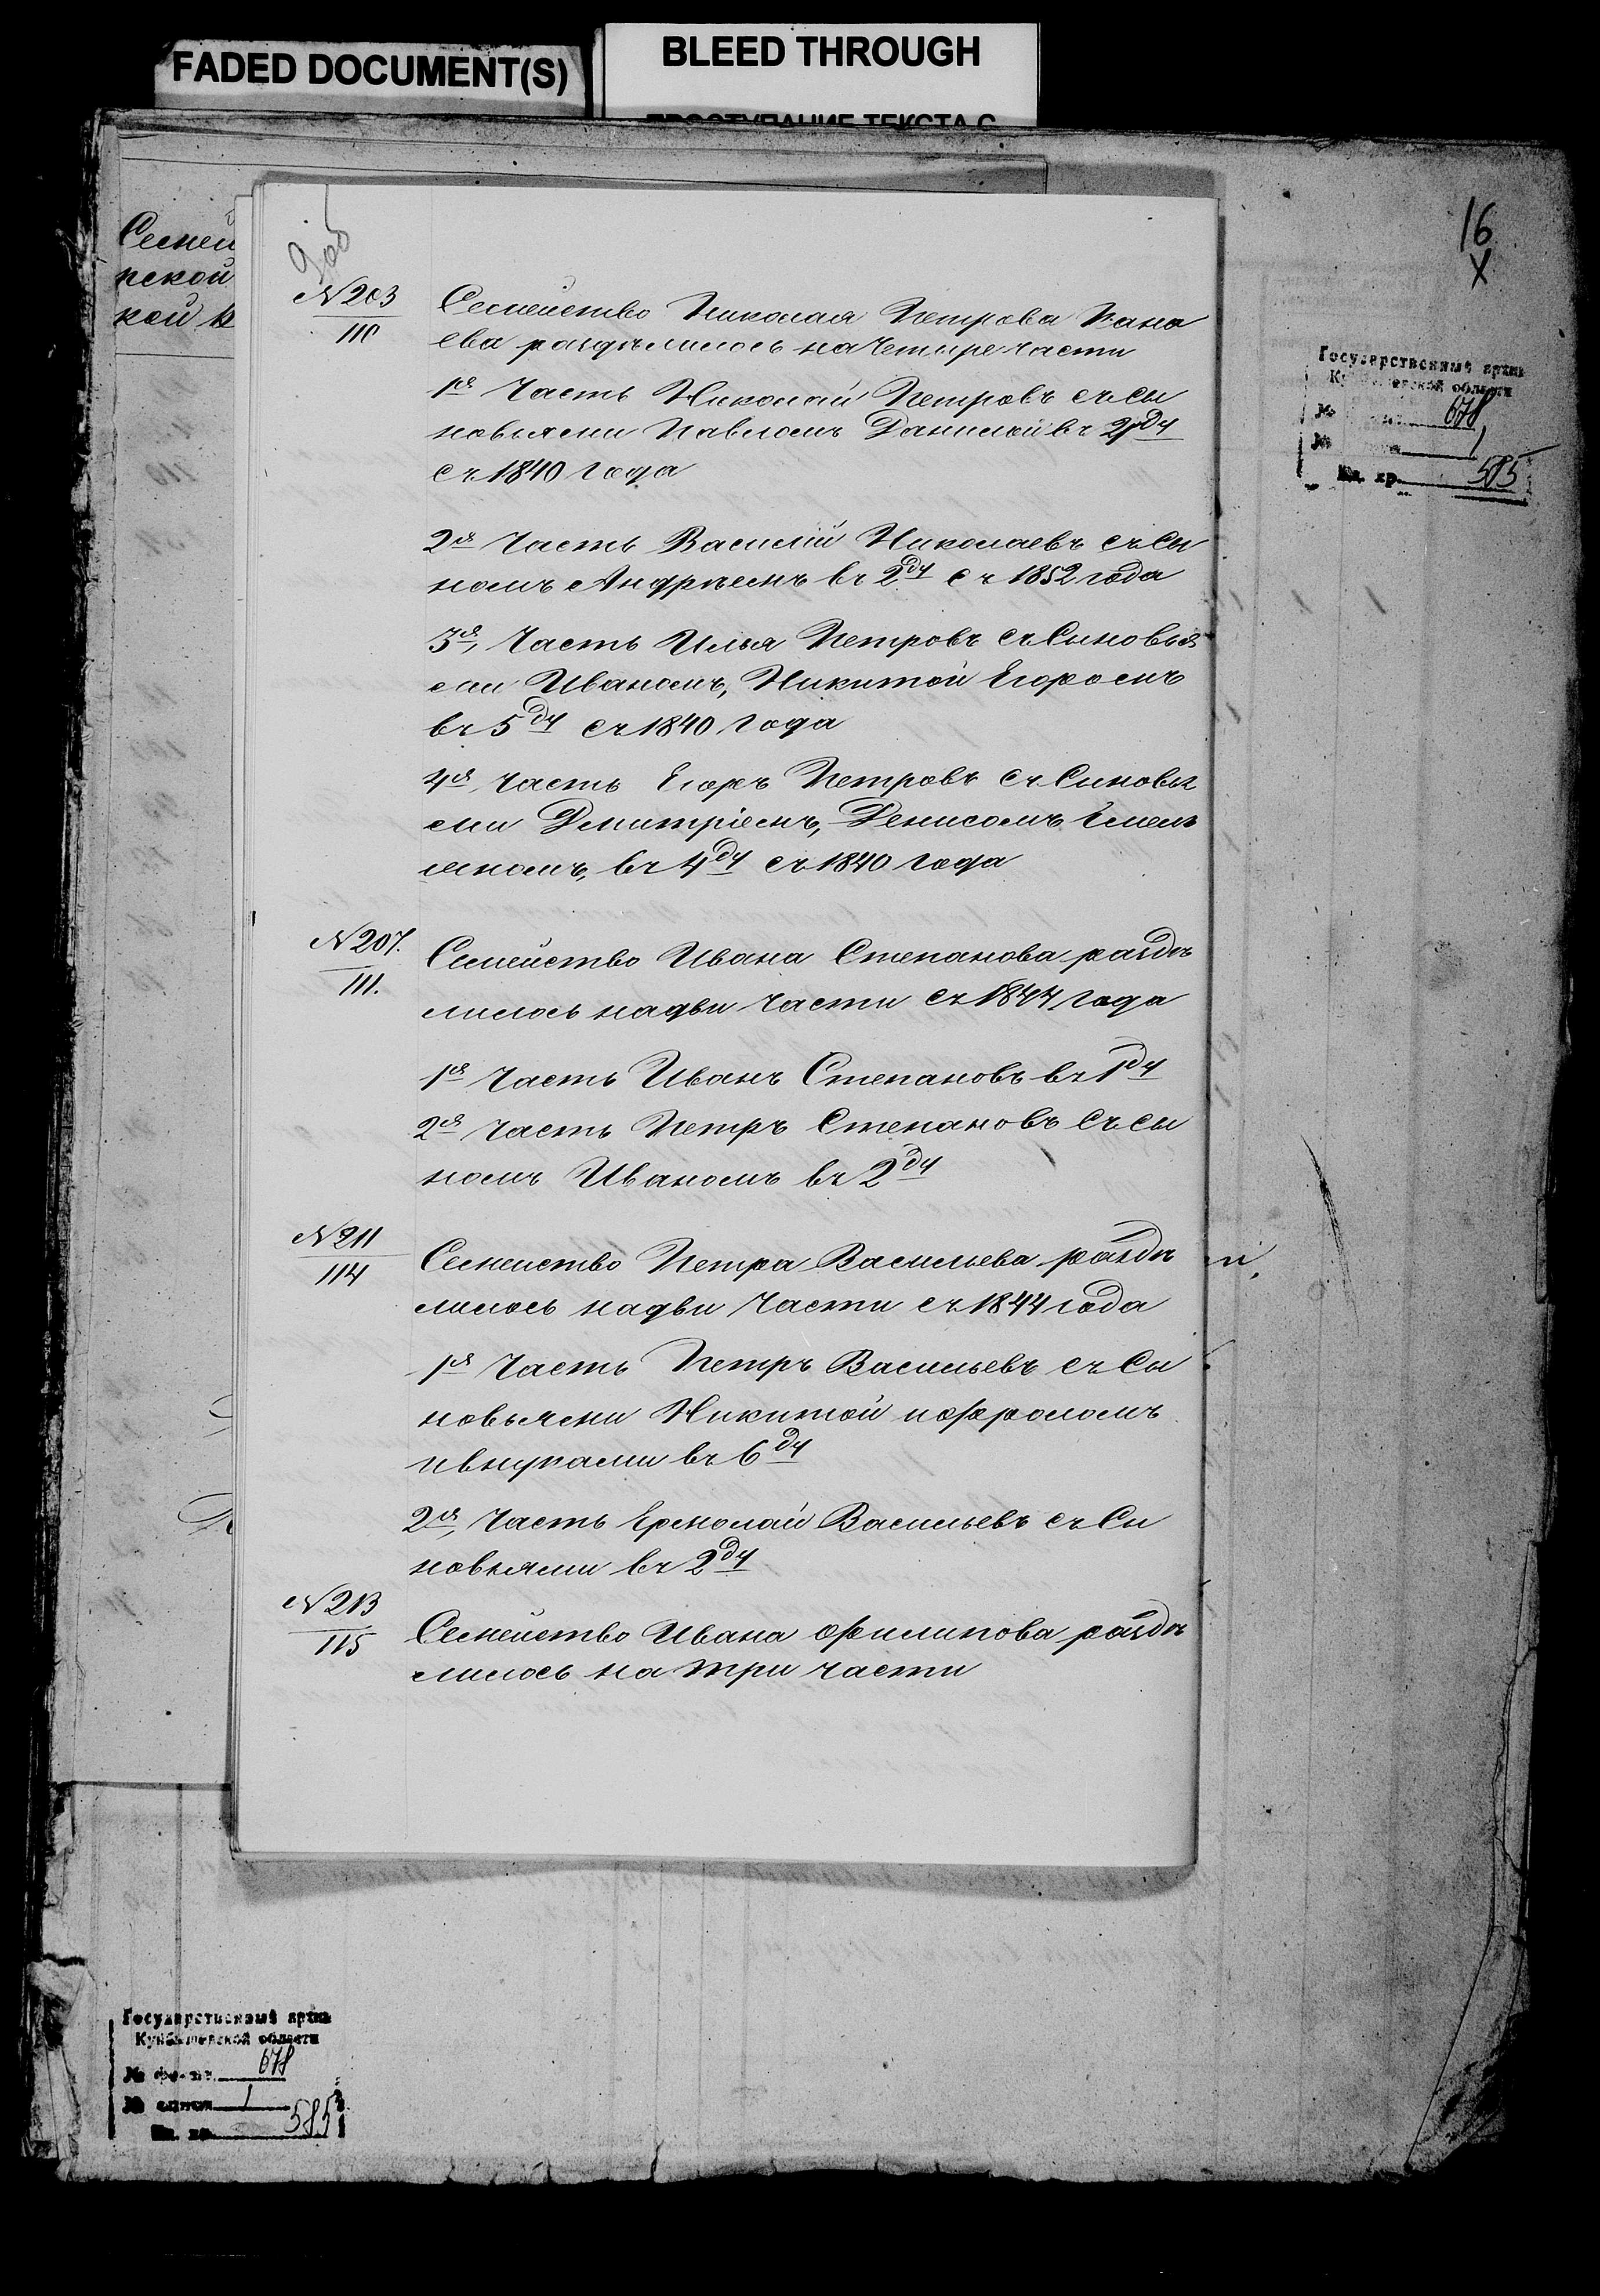 FADED DOCUMENT(S)
BLEED THROUGH
ПРОСТУПАНИЕ ТЕКСТА С
16
Х
Семей
пской
кой в
№ 203
110
Семейство Николая Петрова Кана
ева раздѣлилось на Четыре части
1я Часть Николай Петровъ съ Сы
новьями Павломъ Данилой въ 2 дч
съ 1840 года
2я Часть Василій Николаевъ съ Сы
номъ Андрѣемъ въ 2 дч съ 1852 года
3я Часть Илья Петровъ съ Сыновья
ми Иваномъ, Никитой Егоромъ
въ 5 дч съ 1840 года
4я Часть Егоръ Петровъ съ Сыновья
ми Дмитріемъ, Денисомъ Емель
яномъ, въ 4 дч съ 1840 года
№ 207.
111.
Семейство Ивана Степанова раздѣ
лилось на двѣ Части съ 1844 года
1я Часть Иванъ Степановъ въ 1 дч
2я Часть Петръ Степановъ съ сы
номъ Иваномъ въ 2 дч
№ 211
114
Семейство Петра Васильева раздѣ
лилось на двѣ Части съ 1844 года
1я Часть Петръ Васильевъ съ Сы
новьями Никитой и Фроломъ
и внуками въ 6 дч
2я Часть Ермолай Васильевъ съ Сы
новьями въ 2 дч
№ 213
115
Семейство Ивана Филипова раздѣ
лилось на три части
Государственный архив
Куйбышевской области
№ 678
№ 1
Ед. хр. 585
Государственный архив
Куйбышевской области
№ фонда 678
№ описи 1
Ед. хр. 585